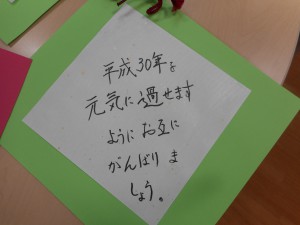 平成30年を
元気に過せます
ようにお互に
がんばりま
しょう。